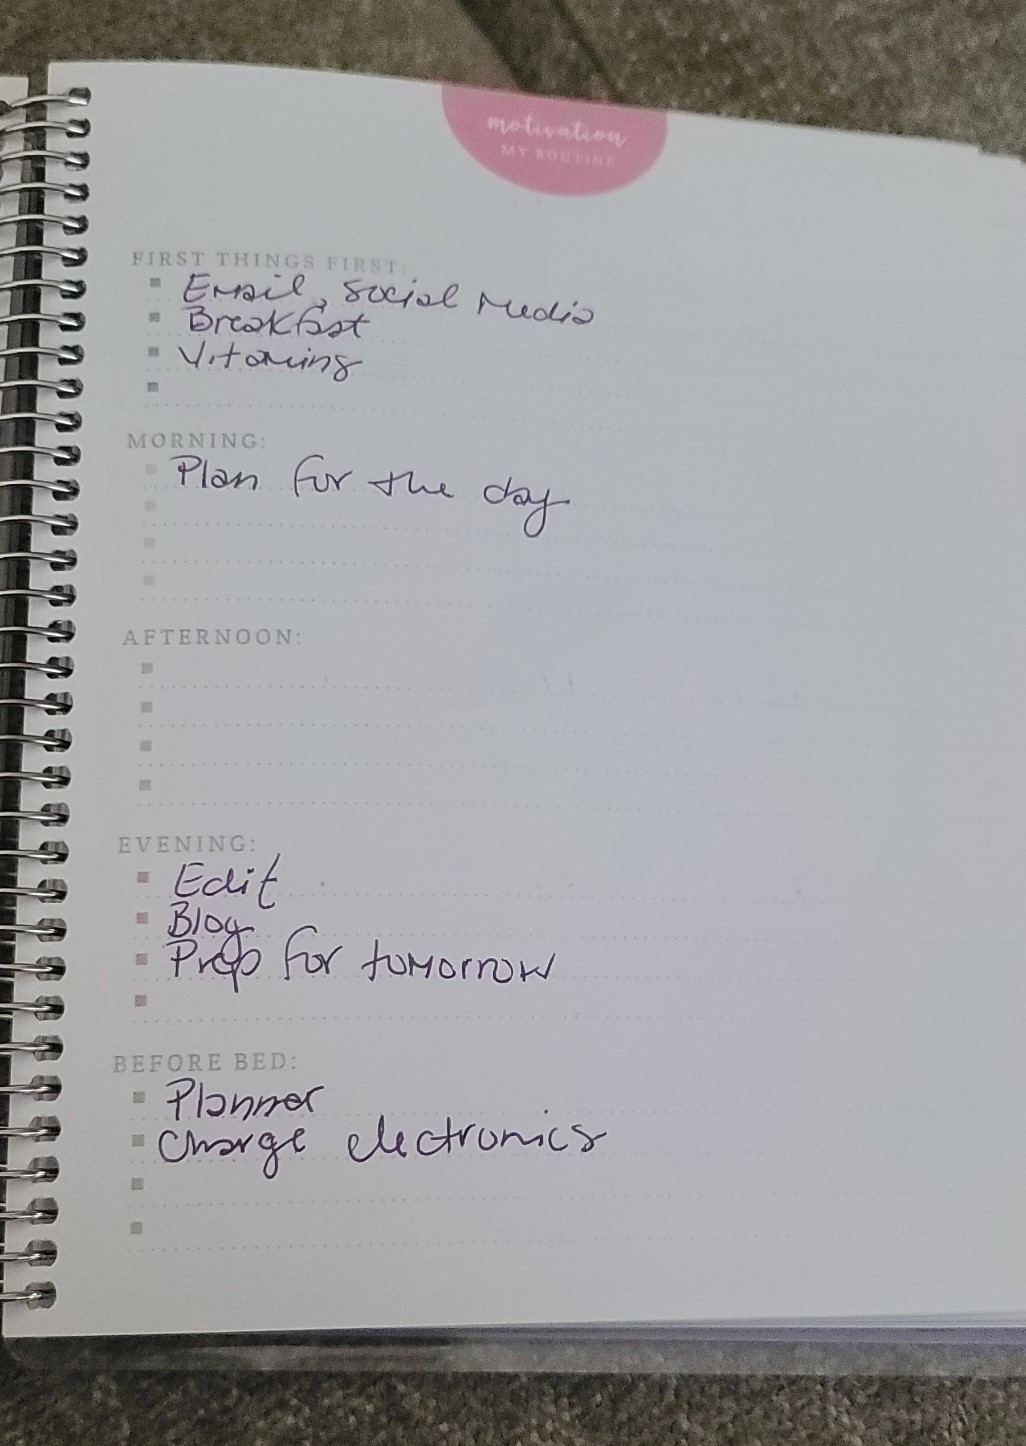 motivation
MY ROUTINE
FIRST THINGS FIRST:
Email, Social Media
Breakfast
Vitamins
MORNING:
Plan for the day
AFTERNOON:
EVENING:
Edit
Blog
Prep for tomorrow
BEFORE BED:
Planner
Charge electronics